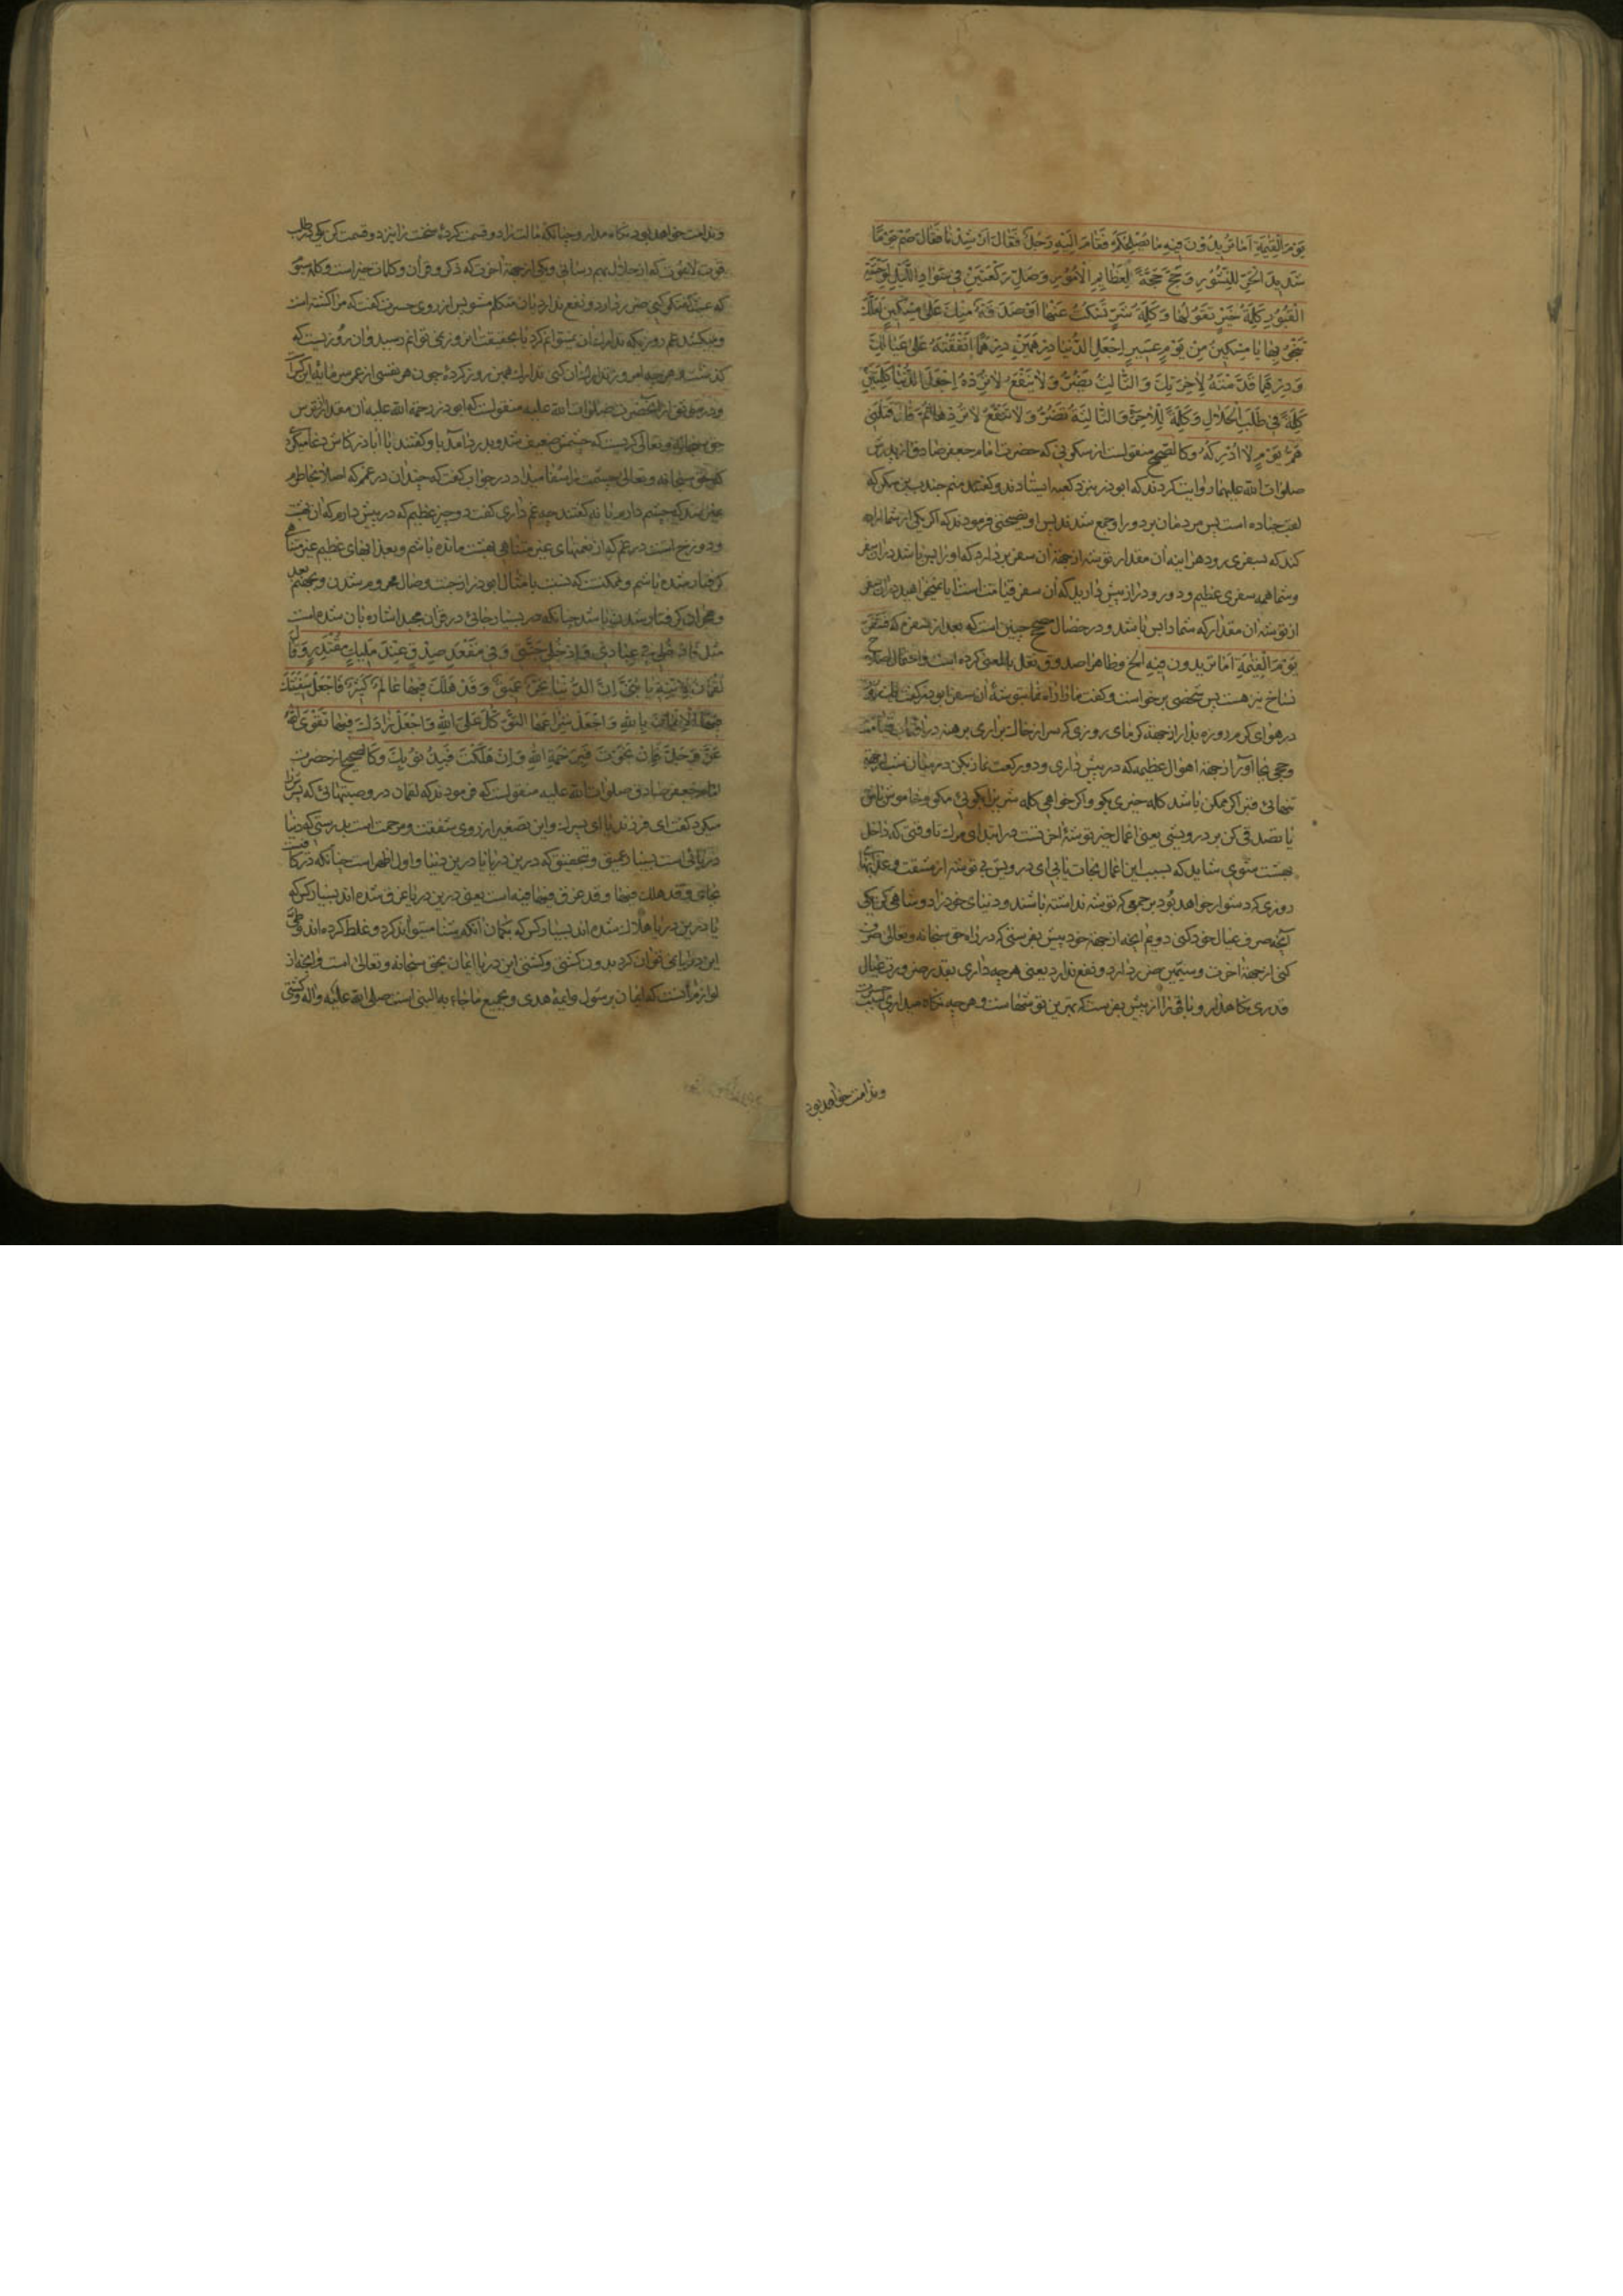 يَوْمَ الْقِيٰمَةِ اَمَا تُرِيدُوْنَ فِيهِ مَا يُصْلِحُكُمْ فَقَامَ اِلَيْهِ رَجُلٌ فَقَالَ اَرْشِدْنَا فَقَالَ صُمْ يَوْمًا
شَدِيدَ الْحَرِّ لِلنُّشُورِ وَحُجَّ حَجَّةً لِعَظَايِمِ الْاُمُوْرِ وَصَلِّ رَكْعَتَيْنِ فِي سَوَادِ اللَّيْلِ لِوَحْشَةِ
الْقُبُوْرِ كَلِمَةُ خَيْرٍ تَقُوْلُهَا وَكَلِمَةُ شَرٍّ تَسْكُتُ عَنْهَا اَوْ صَدَقَةٌ مِنْكَ عَلٰى مِسْكِينٍ لَعَلَّكَ
تَنْجُوْ بِهَا يَا مِسْكِينُ مِنْ يَوْمٍ عَسِيرٍ اِجْعَلِ الدُّنْيَا دِرْهَمَيْنِ دِرْهَمًا اَنْفَقْتَهُ عَلٰى عِيَالِكَ
وَدِرْهَمًا قَدَّمْتَهُ لِاٰخِرَتِكَ وَالثَّالِثُ يَضُرُّ وَلَا يَنْفَعُ لَا تُرِدْهُ اِجْعَلِ الدُّنْيَا كَلِمَتَيْنِ
كَلِمَةً فِي طَلَبِ الْحَلَالِ وَكَلِمَةً لِلْاٰخِرَةِ وَالثَّالِثَةُ تَضُرُّ وَلَا تَنْفَعُ لَا تُرِدْهَا ثُمَّ قَالَ قَتَلَنِي
هَمُّ يَوْمٍ لَا اُدْرِكُهُ وكالصحيح منقولست از سكونى كه حضرت امام جعفر صادق از پدرش
صلوات الله عليهما روايت كردند كه ابوذر نزد كعبه ايستادند و گفتند منم جندب بن سكن كه
لقب جناده است پس مردمان بر دور او جمع شدند پس او نصيحتى فرمودند كه اگر يكى از شما اراده
كند كه بسفرى رود هر اينه آن مقدار توشه از جهة آن سفر بر دارد كه او را بس باشد در آن سفر
و شما همه سفرى عظيم و دور و دراز پيش داريد كه آن سفر قيامت است ايا نميخواهيد در آن سفر
از توشه آن مقدار كه شما را بس باشد و در خصال صحيح چنين است كه بعد از سفرم كه فتزودوا
يَوْمَ الْقِيٰمَةِ اَمَا تريدون فيه الخ و ظاهرا صدوق نقل بالمعنى كرده است و احتمال اصلاح
نساخ نيز هست پس شخصى برخواست و گفت ما را راه نما بتوشهٔ آن سفر ابوذر گفت يك روز
در هواى گرم روزه بدار از جهة گرماى روزى كه سر از خاك برارى برهنه در آفتاب قيامت
و حجى بجا آور از جهة اهوال عظيمه كه در پيش دارى و دو ركعت نماز بكن در ميان شب از جهة
تنهائى قبر اگر ممكن باشد كلمه خيرى بگو و اگر خواهى كلمه شر را بگوئى مگو و خاموش باش
يا تصدقى كن بر درويشى يعنى اعمال خير توشهٔ آخرتست در ابتداى مرك تا وقتى كه داخل
بهشت شوى شايد كه بسبب اين اعمال نجات يابى اى درويش بى توشه از مشقت و عذابهاى
روزى كه دشوار خواهد بود بر جمعى كه توشه نداشته باشند و دنياى خود را دو شاهى كن يكى
آنكه صرف عيال خود كنى دويم آنچه از جهة خود پيش بفرستى كه در راه حق سبحانه و تعالى صرف
كنى از جهة آخرت و سيمين ضرر دارد و نفع ندارد يعنى هر چه دارى بقدر ضرورت عيال
قدرى نگاهدار و باقى را از پيش بفرست كه بهترين توشهاست و هر چه نگاه ميدارى سبب حسرت
و ندامت خواهد بود
و ندامت خواهد بود نگاه مدار و چنانكه مالت را دو قسمت كردهٔ سخنت را نيز دو قسمت كن يكى در طلب
قوت لايموت كه از حلال بهم رسانى و يكى از جهة آخرت كه ذكر و قرآن و كلمات خير است و كلمه سيوم
كه عبث گفتگو كنى ضرر دارد و نفع ندارد بآن متكلم مشو پس از روى حسرت گفت كه مرا كشته است
و ميكشد غم روزى كه تدارك آن نميتوانم كرد يا بحقيقت امروزى نتوانم رسيد و آن روزيست كه
گذشت و هر چه امروز تدارك آن كنى تدارك همين روز كردهٔ چون هر نفسى از عمر سرمايه
و در موثق از آنحضرت صلوات الله عليه منقولست كه ابوذر رحمة الله عليه آن مقدار از ترس
حق سبحانه و تعالى گريست كه چشمش ضعيف شد و بدرد آمد يا او گفتند يا ابا ذر كاش دعا ميكردى
كه حق سبحانه و تعالى چشمت را شفا ميداد در جواب گفت كه چندان در غمم كه اصلا بخاطرم
نميرسد كه چشم دارم يا نه گفتند چه غم دارى گفت دو چيز عظيم كه در پيش دارم كه آن بهشت
و دوزخ است در غمم كه از نعمتهاى غير متناهى بهشت مانده باشم و بعذابهاى عظيم غير متناهى
گرفتار شده باشم و ممكنست كه نسبت بامثال ابوذر از جنت وصال محروم شدن و بجهنم بعد
و هجران گرفتار شدن باشد چنانكه در بسيار جائى در قرآن مجيد اشاره بآن شده است
مثل فَادْخُلِي فِي عِبَادِي وَادْخُلِي جَنَّتِي وَ فِي مَقْعَدِ صِدْقٍ عِنْدَ مَلِيكٍ مُقْتَدِرٍ وَقَالَ
لُقْمَانُ لِابْنِهِ يَا بُنَيَّ اِنَّ الدُّنْيَا بَحْرٌ عَمِيقٌ وَقَدْ هَلَكَ فِيهَا عَالَمٌ كَثِيرٌ فَاجْعَلْ سَفِينَتَكَ
فِيهَا الْاِيمَانَ بِاللهِ وَاجْعَلْ شِرَاعَهَا التَّوَكُّلَ عَلَى اللهِ وَاجْعَلْ زَادَكَ فِيهَا تَقْوَى اللهِ
عَزَّ وَجَلَّ فَاِنْ نَجَوْتَ فَبِرَحْمَةِ اللهِ وَاِنْ هَلَكْتَ فَبِذُنُوْبِكَ وكالصحيح از حضرت
امام جعفر صادق صلوات الله عليه منقولست كه فرمودند كه لقمان در وصيتهائى كه پسر را
ميكرد گفت اى فرزند يا اى پسرك و اين تصغير از روى شفقت و مرحمت است بدرستى كه دنيا
دريائى است بسيار عميق و بتحقيق كه درين دريا يا درين دنيا و اول اظهر است چنانكه در كافى
بجاى و قد هلك فيها و قد غرق فيها فيه است يعنى درين دريا غرق شده اند بسيار كس كه
يا درين دريا هلاك شده اند بسيار كس كه بگمان آنكه بشنا ميتوان كرد و غلط كرده اند و طى
اين دريا نمى توان كرد بدون كشتى و كشتى اين دريا ايمان بحق سبحانه و تعالى است و آنچه از
لوازم آنست كه ايمان برسول و ائمهٔ هدى و بجميع ما جاء به النبى است صلى الله عليه و آله و كشتى